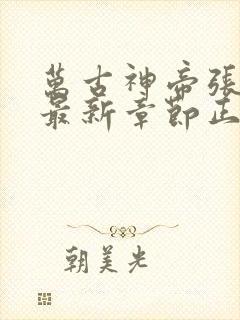 萬古神帝張
最新章節正
朝美光